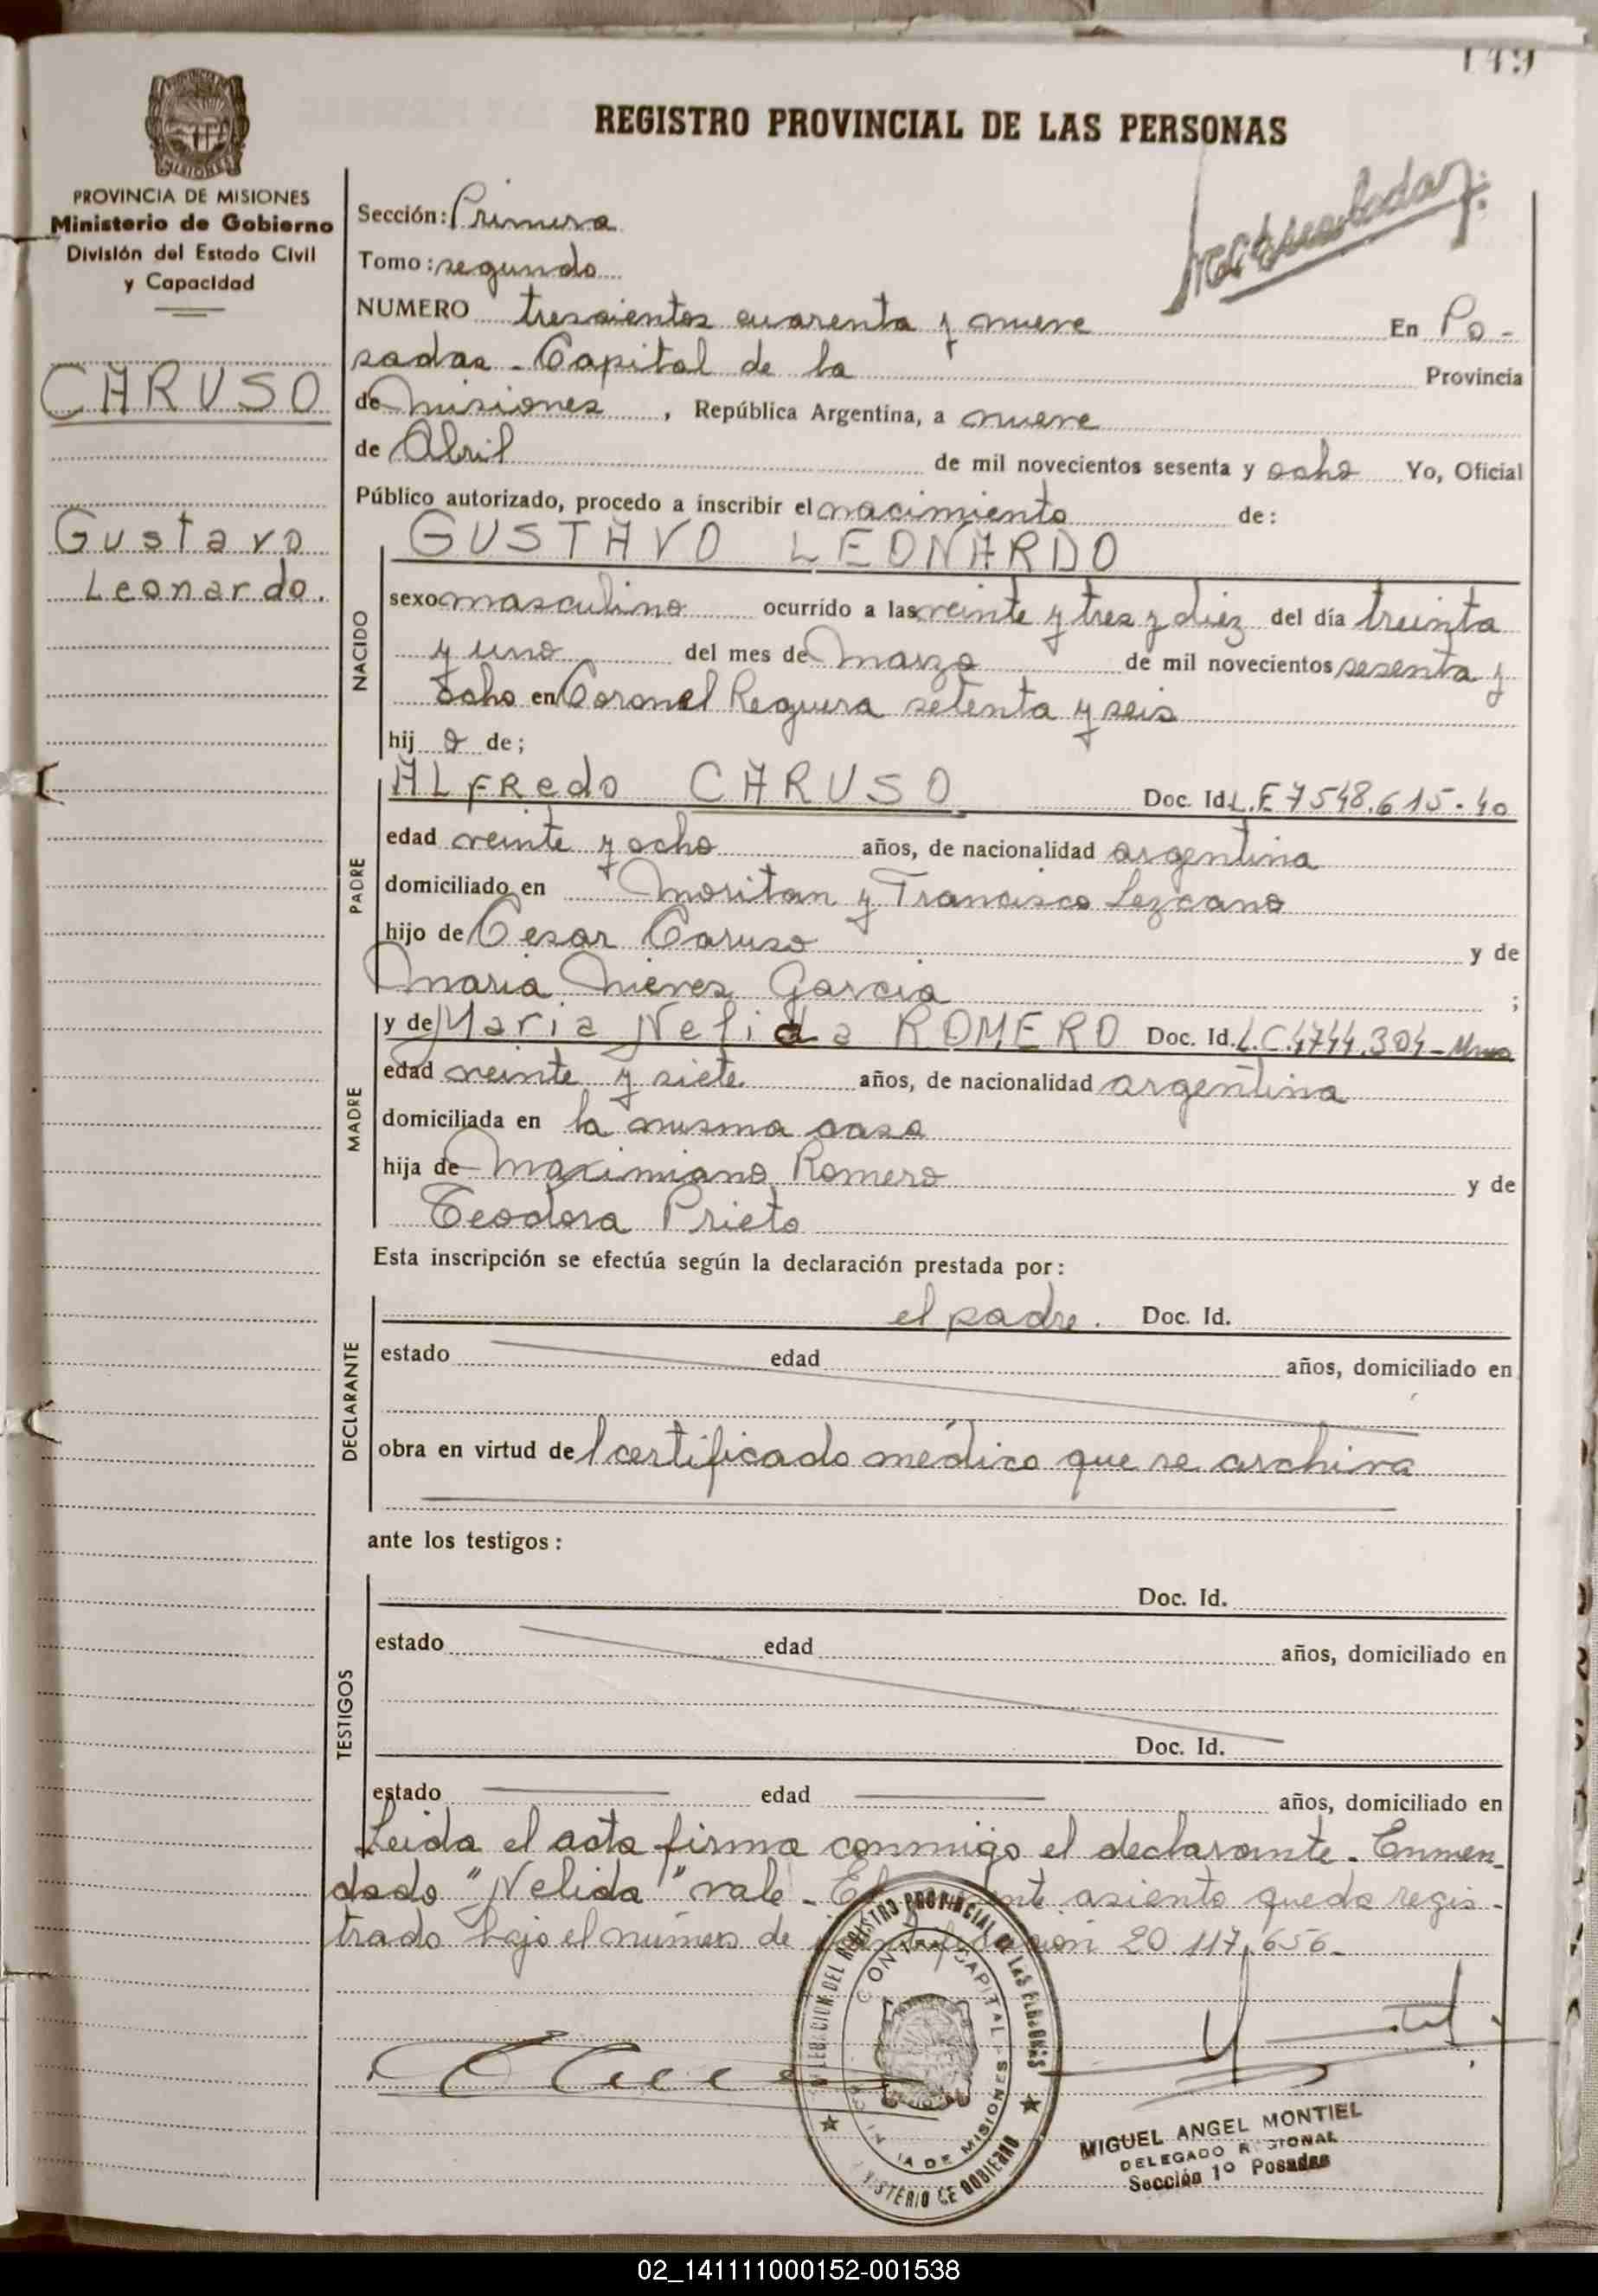 149
REGISTRO PROVINCIAL DE LAS PERSONAS
MISIONES
PROVINCIA DE MISIONES
Ministerio de Gobierno
División del Estado Civil
y Capacidad
CARUSO
Gustavo
Leonardo.
Sección: Primera
Tomo: segundo
NUMERO trescientos cuarenta y nueve En Po-
sadas - Capital de la Provincia
de Misiones, República Argentina, a nueve
de Abril de mil novecientos sesenta y ocho Yo, Oficial
Público autorizado, procedo a inscribir el nacimiento de:
NACIDO
GUSTAVO LEONARDO
sexo masculino ocurrido a las veinte y tres y diez del día treinta
y uno del mes de Marzo de mil novecientos sesenta y
ocho en Coronel Reguera setenta y seis
hij o de;
PADRE
ALFRedo CARUSO Doc. Id. L.E 7548.615-40
edad veinte y ocho años, de nacionalidad argentina
domiciliado en Moritan y Francisco Lezcano
hijo de Cesar Caruso y de
Maria Nieves Garcia ;
MADRE
y de Maria Nelida ROMERO Doc. Id. L.C.4744.304-
edad veinte y siete años, de nacionalidad argentina
domiciliada en la misma casa
hija de Maximiano Romero y de
Teodora Prieto
Esta inscripción se efectúa según la declaración prestada por:
DECLARANTE
el padre. Doc. Id.
estado edad años, domiciliado en
obra en virtud del certificado médico que se archiva
ante los testigos:
TESTIGOS
Doc. Id.
estado edad años, domiciliado en
Doc. Id.
estado edad años, domiciliado en
Leida el acta firma conmigo el declarante. Enmen-
dado "Nelida" vale - El asiento queda regis-
trado bajo el número de 20.117.656-
MIGUEL ANGEL MONTIEL
DELEGADO REGIONAL
Sección 1º Posadas
02_141111000152-001538